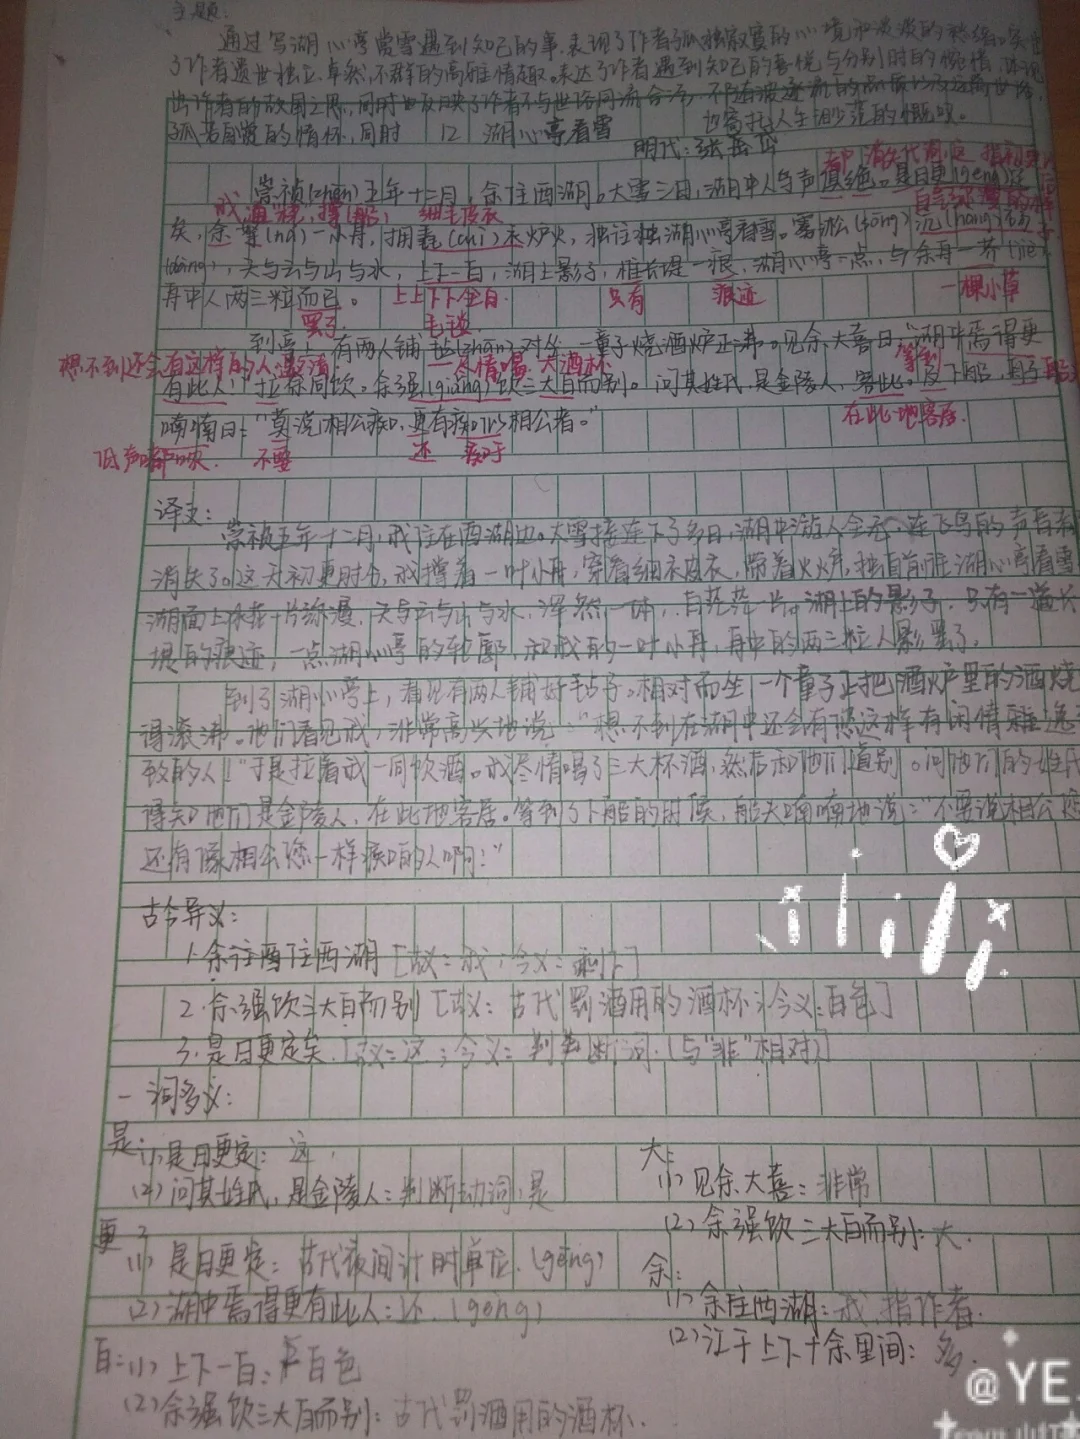 主题:
通过写湖心亭赏雪遇到知己的事,表现了作者孤独寂寞的心境和淡淡的愁绪。突出
了作者遗世独立、卓然不群的高雅情趣。表达了作者遇到知己的喜悦与分别时的惋惜,体现
出作者的故国之思,同时也反映了作者不与世俗同流合污、不随波逐流的品质以及远离世俗,
孤芳自赏的情怀,同时 12 湖心亭看雪 也寄托人生渺茫的慨叹。
明代:张岱
都 消失
崇祯(zhēn)五年十二月,余住西湖。大雪三日,湖中人鸟声俱绝。是日更(gēng)定
我 通 撑(船) 细毛皮衣
矣,余拏(ná)一小舟,拥毳(cuì)衣炉火,独往独湖心亭看雪。雾凇(sōng)沆(hàng)砀
(dàng),天与云与山与水,上下一白,湖上影子,惟长堤一痕,湖心亭一点,与余再一芥(jiè)
舟中人两三粒而已。 上上下下全白 只有 痕迹 一棵小草
罢了 毛毯
到亭上,有两人铺毡(zhān)对坐,一童子烧酒炉正沸。见余大喜曰:“湖中焉得更
想不到还会有这样的人 邀请 尽情喝 大酒杯 等到
有此人!”拉余同饮。余强(qiǎng)饮三大白而别。问其姓氏,是金陵人,客此。及下船,舟子
喃喃曰:“莫说相公痴,更有痴似相公者。” 在此地客居
低声嘟哝 不要 还 痴于
译文:
崇祯五年十二月,我住在西湖边。大雪接连下了多日,湖中游人全无,连飞鸟的声音都
消失了。这天初更时分,我撑着一叶小舟,穿着细毛皮衣,带着火炉,独自前往湖心亭看雪
湖面上冰花一片弥漫,天与云与山与水,浑然一体,白茫茫一片。湖上的影子,只有一道长
堤的痕迹,一点湖心亭的轮廓,和我的一叶小舟,舟中的两三粒人影罢了。
到了湖心亭上,看见有两人铺好毡子。相对而坐,一个童子正把酒炉里的酒烧
得滚沸。他们看见我,非常高兴地说:“想不到在湖中还会有您这样有闲情雅逸
致的人!”于是拉着我一同饮酒。我尽情喝了三大杯酒,然后和他们道别。问他们的姓氏
得知他们是金陵人,在此地客居。等到了下船的时候,船夫喃喃地说:“不要说相公痴
还有像相公您一样痴的人啊!”
古今异义:
1.余住西住西湖[古义:我;今义:剩下]
2.余强饮三大白而别[古义:古代罚酒用的酒杯;今义:白色]
3.是日更定矣.[古义:这;今义:判断词.(与“非”相对)]
一词多义:
是:
(1)是日更定:这
(2)问其姓氏,是金陵人:判断动词,是
更:
(1)是日更定:古代夜间计时单位.(gēng)
(2)湖中焉得更有此人:还.(gèng)
白:(1)上下一白:白色
(2)余强饮三大白而别:古代罚酒用的酒杯.
大:
(1)见余大喜:非常
(2)余强饮三大白而别:大.
余:
(1)余住西湖:我,指作者.
(2)江于上下十余里间:多.
@YE